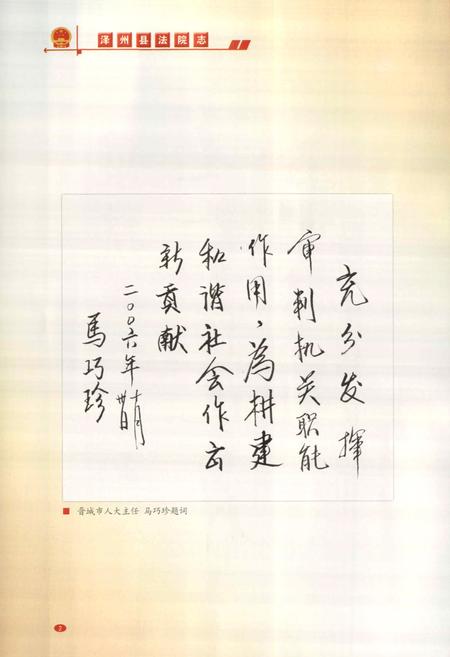 泽州县法院志
充分发挥
审判机关职能
作用，为构建
和谐社会作出
新贡献
二〇〇六年
马巧珍
晋城市人大主任 马巧珍题词
7